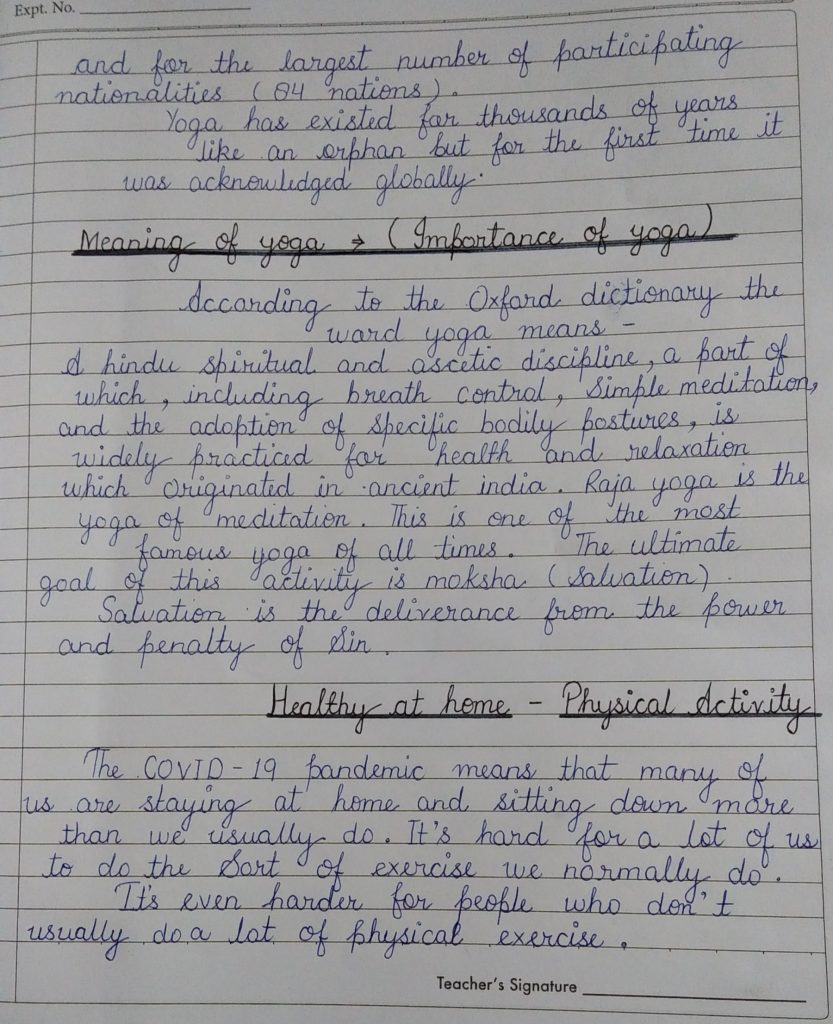 Expt. No.
and for the largest number of participating
nationalities (84 nations).
Yoga has existed for thousands of years
like an orphan but for the first time it
was acknowledged globally.
Meaning of yoga → (Importance of yoga)
According to the Oxford dictionary the
word yoga means -
A hindu spiritual and ascetic discipline, a part of
which, including breath control, simple meditation,
and the adoption of specific bodily postures, is
widely practiced for health and relaxation
which originated in ancient india. Raja yoga is the
yoga of meditation. This is one of the most
famous yoga of all times. The ultimate
goal of this activity is moksha (Salvation).
Salvation is the deliverance from the power
and penalty of Sin.
Healthy at home - Physical Activity
The COVID-19 pandemic means that many of
us are staying at home and sitting down more
than we usually do. It's hard for a lot of us
to do the Sort of exercise we normally do.
It's even harder for people who don't
usually do a lot of physical exercise.
Teacher's Signature